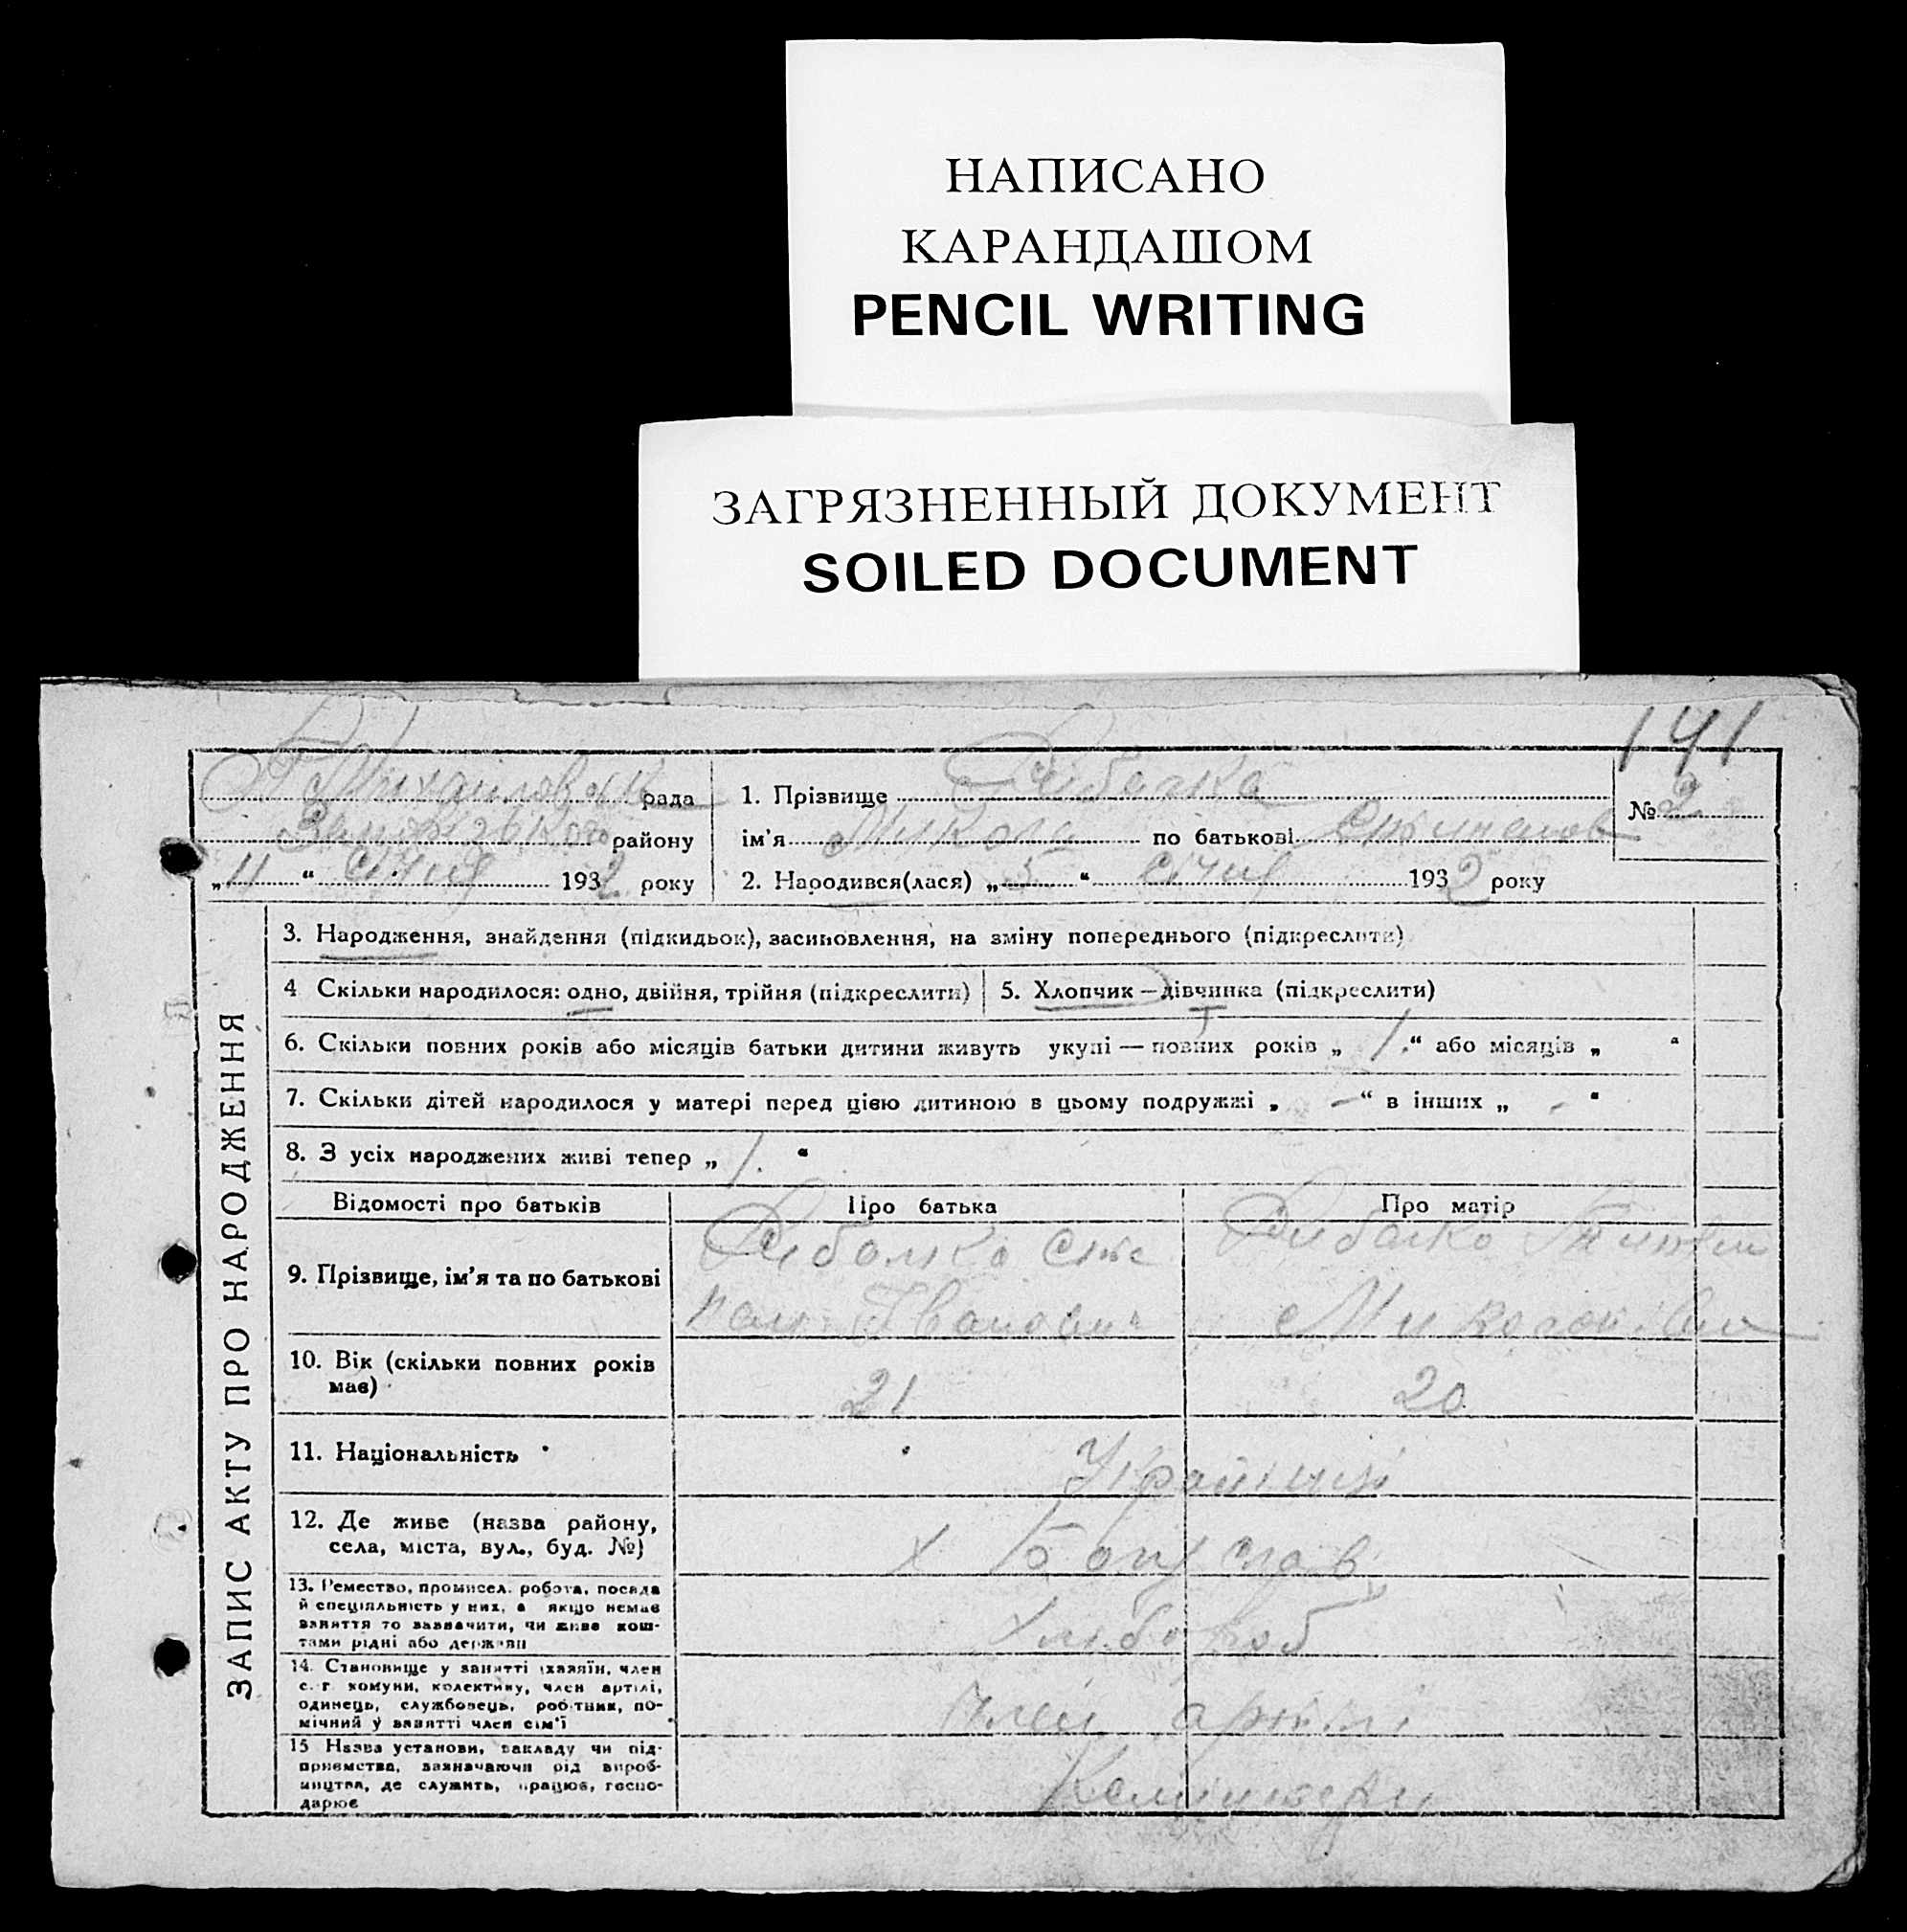 НАПИСАНО
КАРАНДАШОМ
PENCIL WRITING
ЗАГРЯЗНЕННЫЙ ДОКУМЕНТ
SOILED DOCUMENT
141
рада
1. Прізвище Рибалка
№ 2
району
ім'я Микола по батькові
„11“ січня 1932 року
2. Народився(лася) „5“ січня 1932 року
ЗАПИС АКТУ ПРО НАРОДЖЕННЯ
3. Народження, знайдення (підкидьок), засиновлення, на зміну попереднього (підкреслити)
4 Скільки народилося: одно, двійня, трійня (підкреслити)
5. Хлопчик — дівчинка (підкреслити)
6. Скільки повних років або місяців батьки дитини живуть укупі — повних років „1.“ або місяців „ “
7. Скільки дітей народилося у матері перед цією дитиною в цьому подружжі „ —“ в інших „ - “
8. З усіх народжених живі тепер „1. “
Відомості про батьків
Про батька
Про матір
9. Прізвище, ім'я та по батькові
Рибалка Сте
пан Іванович
Рибалка
Миколаївна
10. Вік (скільки повних років
має)
21
20
11. Національність
Українці
12. Де живе (назва району,
села, міста, вул., буд. №)
х Богуслав
13. Ремество, промисел, робота, посада
й спеціяльність у них, а якщо немає
заняття то зазначити, чи живе кош-
тами рідні або держави
Хлібороб
14. Становище у занятті (хазяїн, член
с.-г. комуни, колективу, член артілі,
одинець, службовець, робітник, по-
мічний у занятті член сім'ї
Член артілі
15 Назва установи, закладу чи під-
приємства, зазначаючи рід вироб-
ництва, де служить, працює, госпо-
дарює